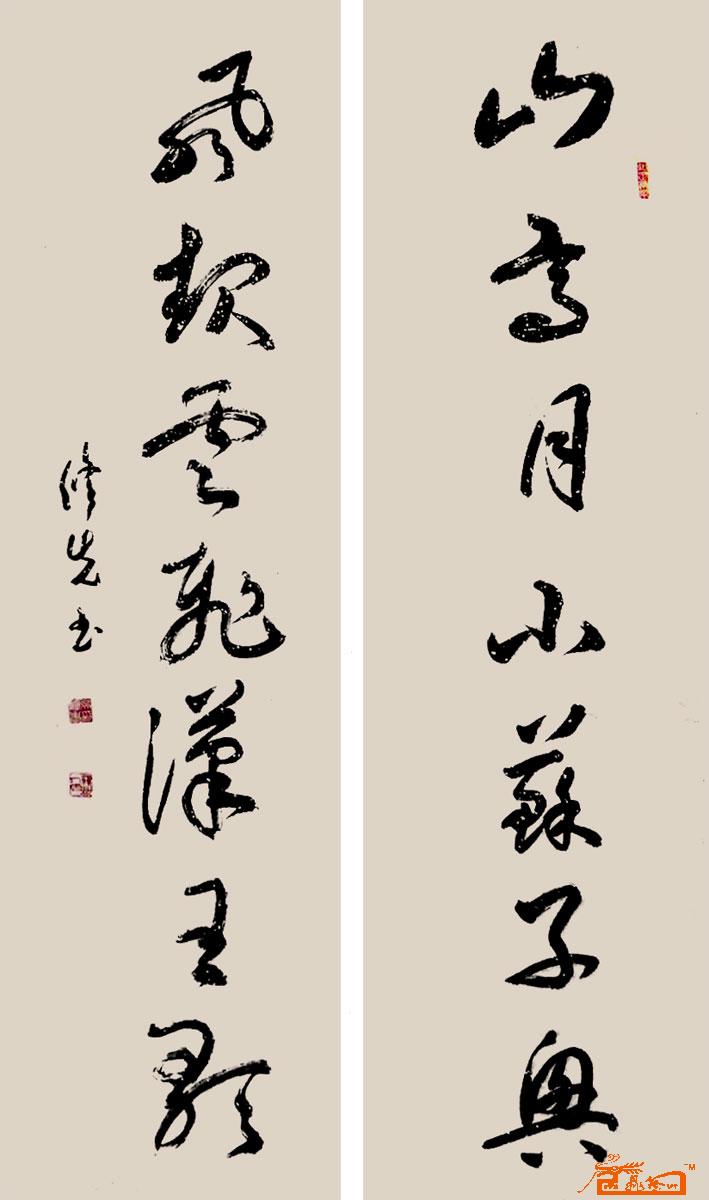 山高月小蘇子興
風起雲飛漢王歌
先书